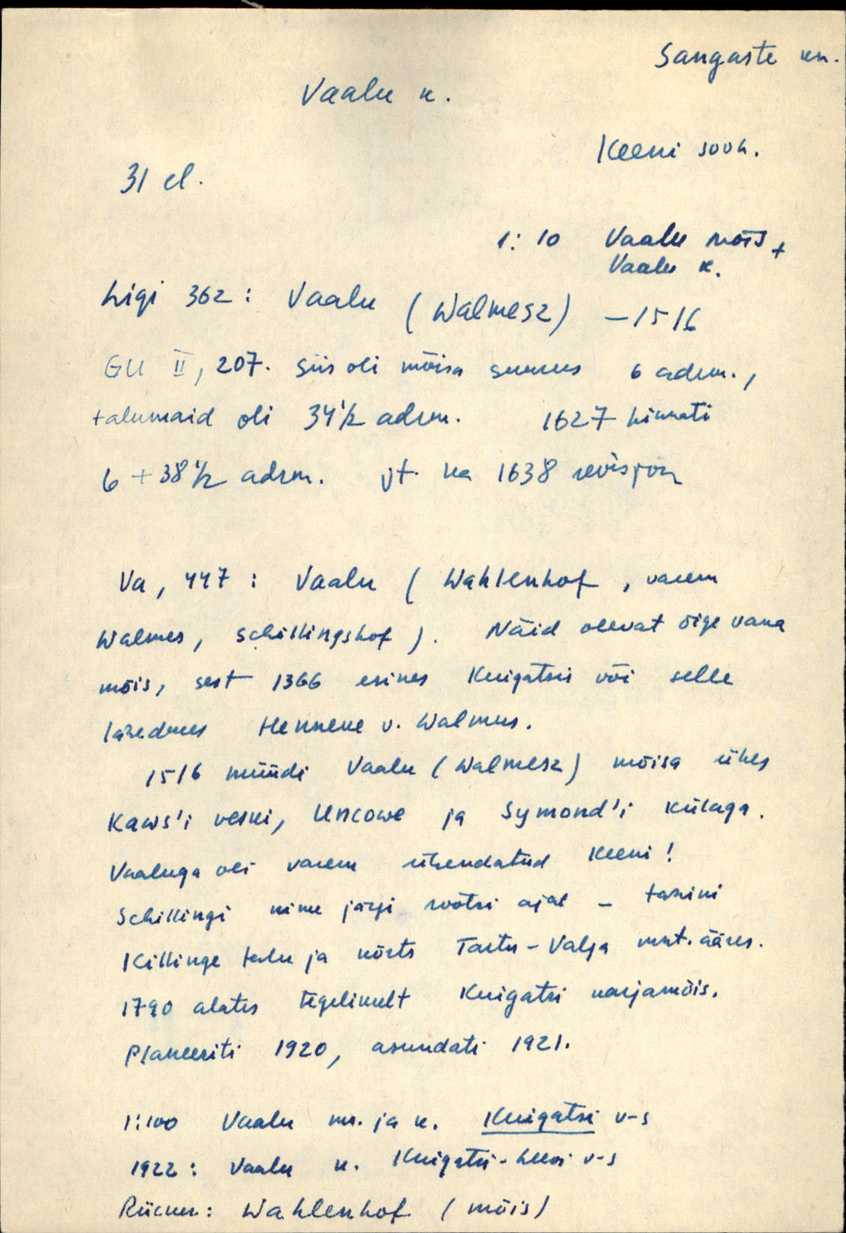 Sangaste kn.
Vaalu k.
Keeni sook.
31 el.
1:10 Vaalu mõis +
Vaalu k.
Ligi 362: Vaalu (Walmesz) – 1516
GU II, 207. Siis oli mõisa suurus 6 adrm.,
talumaid oli 34 1/2 adrm. 1627 hinnati
6 + 38 1/2 adrm. jt. ka 1638 revisjon
Va, 447: Vaalu (Wahlenhof, varem
Walmes, Schillingshof). Näid olevat õige vana
mõis, sest 1366 esines Kuigatsis või selle
läheduses Henneke v. Walmus.
1516 müüdi Vaalu (Walmesz) mõisa ühes
Kaws'i veski, Uncowe ja Symond'i külaga.
Vaaluga oli varem ühendatud Keeni!
Schillingi nime järgi rootsi ajal – tänini
Killinge talu ja kõrts Tartu-Valga mnt. ääres.
1790 alates tegelikult Kuigatsi karjamõis.
Planeeriti 1920, asundati 1921.
1:100 Vaalu m. ja k. Kuigatsi v-s
1922: Vaalu k. Kuigatsi- v-s
Rücker: Wahlenhof (mõis)